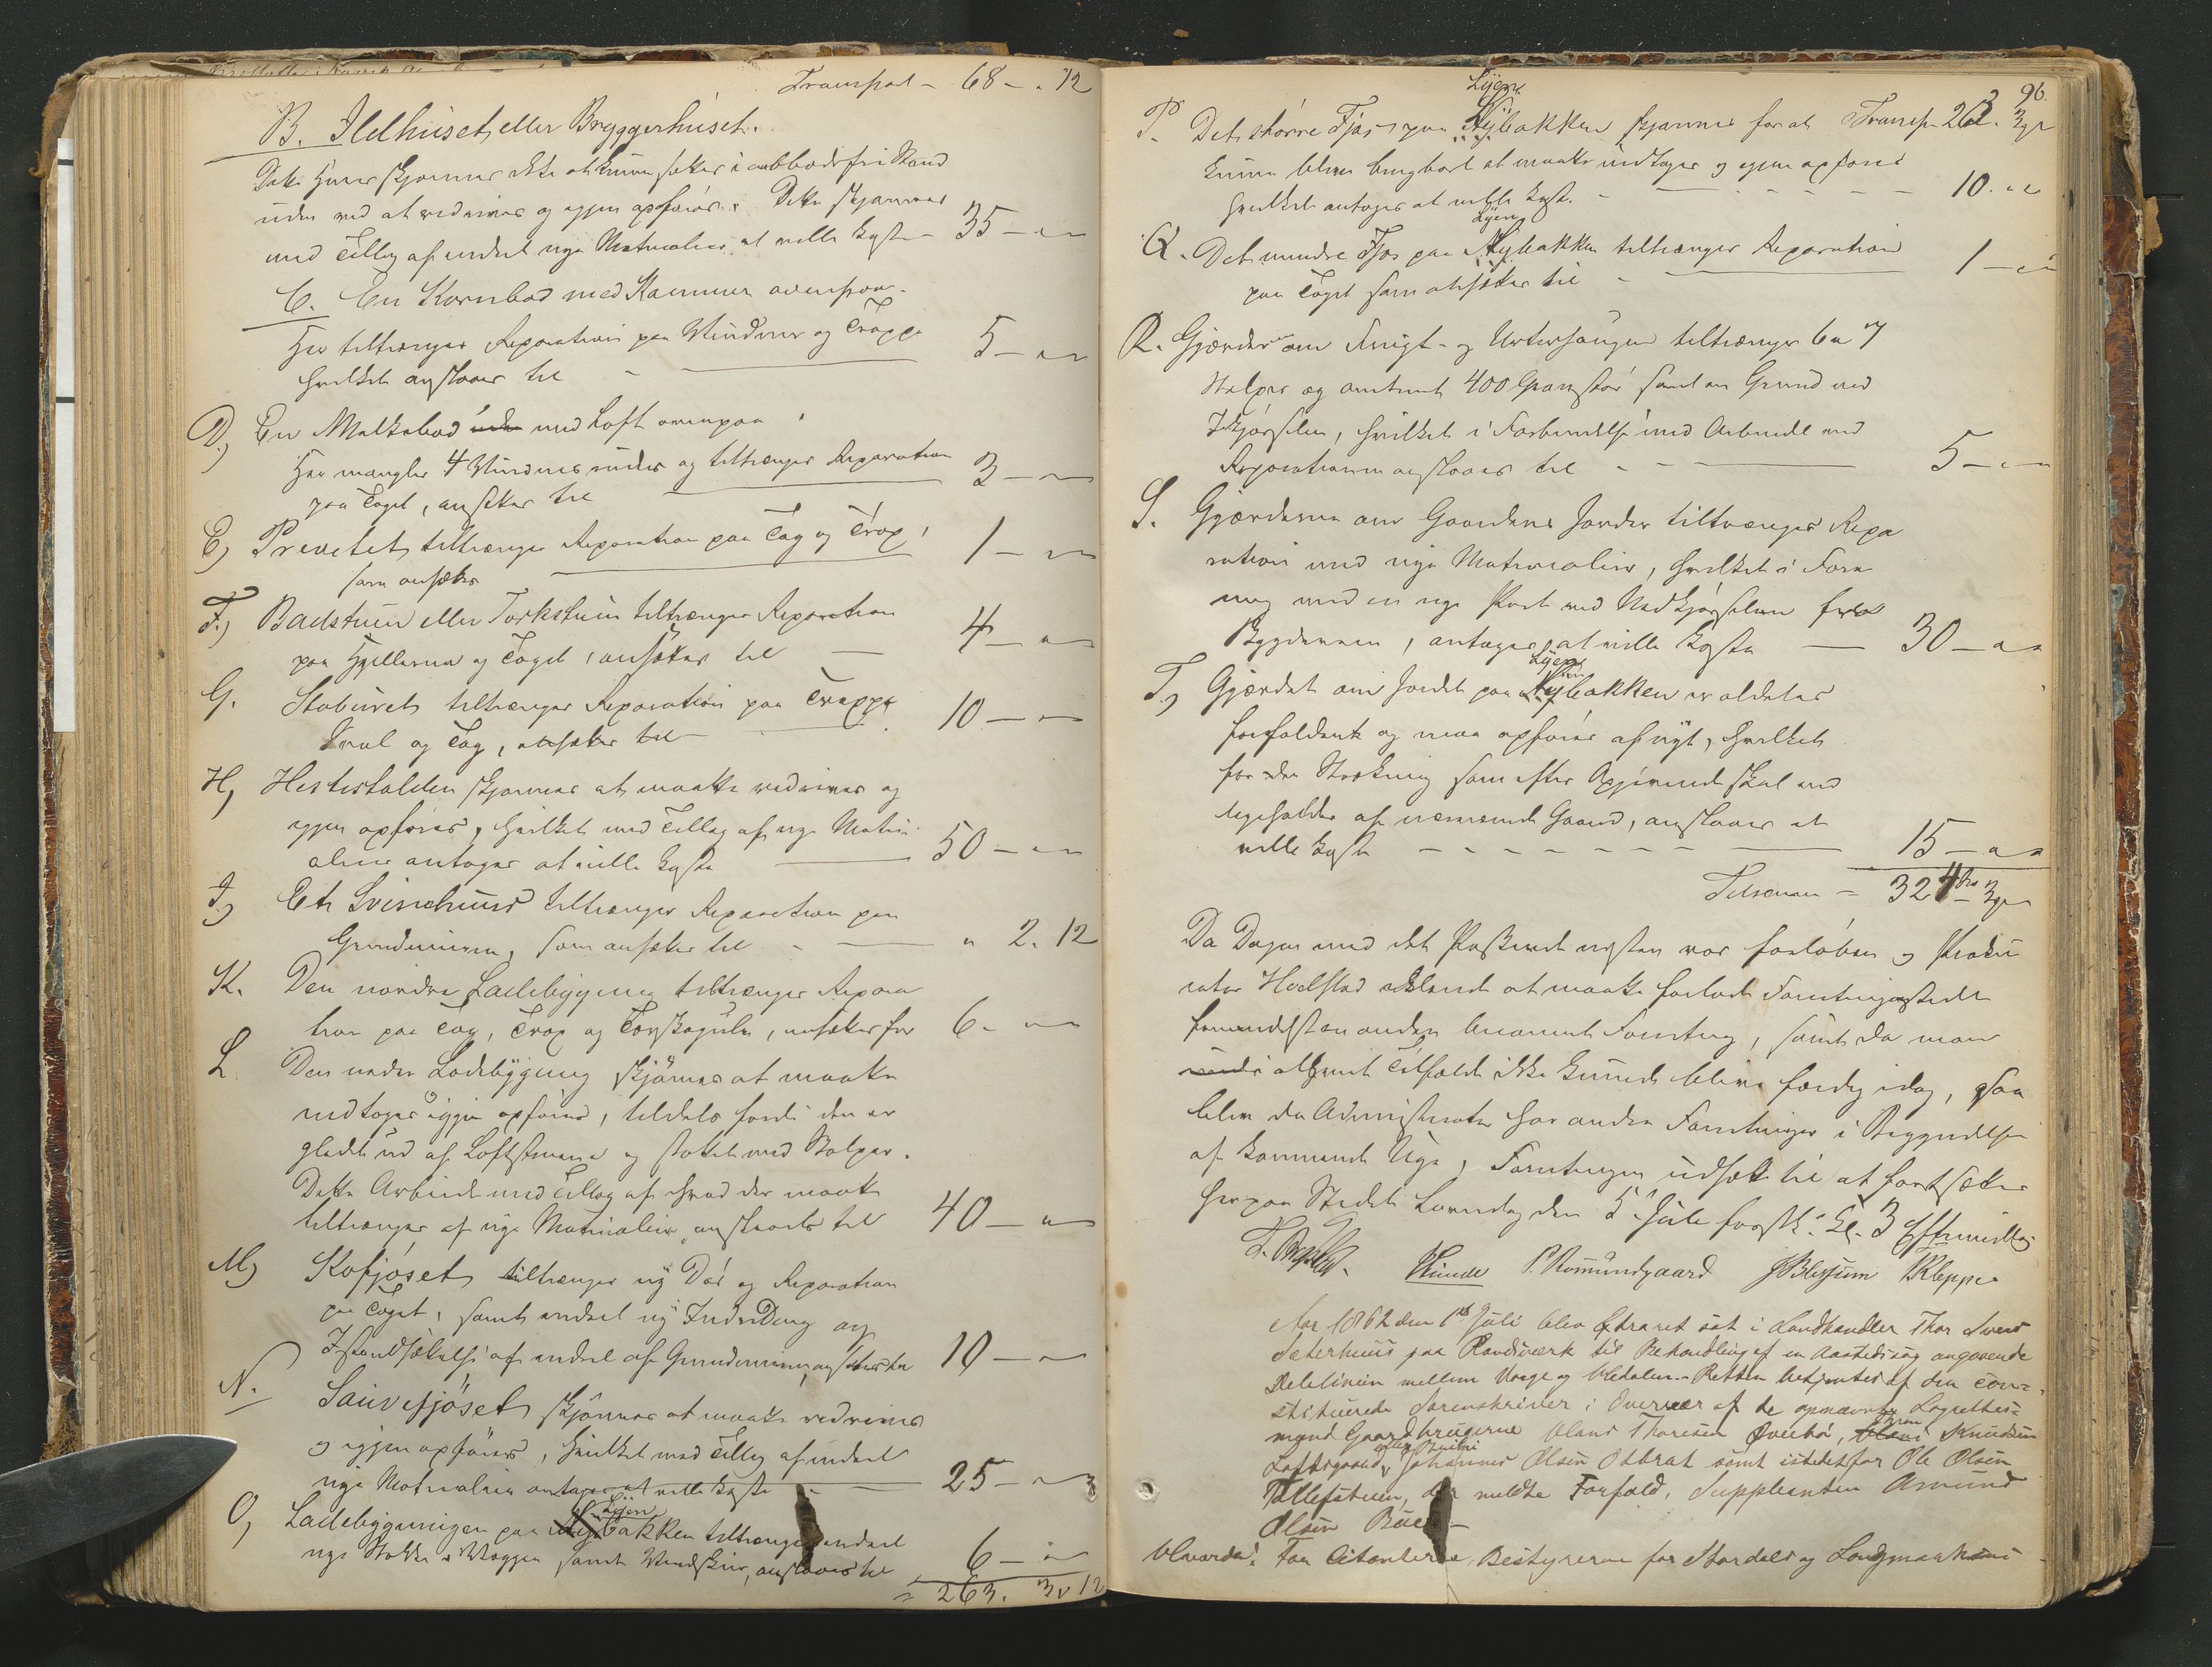 Transport - 68 - " 12
B. Ildhuset eller Bryggerhuset.
Dette Huus skjønnes ikke at kunne sættes i aabodsfri Stand
uden ved at nedrives og igjen opføres. Dette skjønnes
med Tillæg af endeel nye Materialier at ville koste - 35 - " "
C. En Kornbod med Kammer ovenpaa.
Her tiltrænges Reparation paa Vinduer og Trappe
hvilket anslaaes til - 5 - " "
D, En Melkebod med Loft ovenpaa.
Her mangler 4 Vinduesruder og tiltrænges Reparation
paa Taget, ansættes til 3 - "
E, Prevetet, tiltrænger Reparation paa Tag og Trap,
som ansættes 1 - "
F., Badstuen eller Torkstuen tiltrænger Reparation
paa Hjellerne og Taget, ansættes til 4 - "
G. Stoburet tiltrænger Reparation paa Trappe
Sval og Tag, ansættes til 10 - "
H, Hestestalden skjønnes at maatte nedrives og
igjen opføres, hvilket med Tillæg af nye Materi
alier antages at ville koste 50 - "
I, Et Svinehuus tiltrænger Reparation paa
Grundmuren, som ansættes til - " 2. 12
K. Den nordre Ladebygning tiltrænger Repara
tion paa Tag, Trap og , ansættes for 6 - "
L Den nedre Ladebygning skjönnes at maatte
nedtages og igjen opføres, tildels fordi den er
gledet ud af Loftstuerne og støttet med Stolper.
Dette Arbeide med Tillæg af hvad der maatte
tiltrænges af nye Materialier, ansloaes til 40 - "
M, Kofjøset, tiltrænger ny Dør og Reparation
paa Taget, samt endeel ny og
Istandsættelse af endeel af Grundmuren, ansættes til 10 - "
N. Sauefjöset skjönnes at maatte nedrives
og igjen opføres, hvilket med Tillæg af endeel
nye Materialier antages at ville koste - 25 - "
Lijen
O, Ladebygningen paa bakken tiltrænger endeel
nye Stokke i Væggen samt Vindskier, anslaaes til 6 - "
= 263. 3 v 12
96.
Lijen
P. Det større Fjøs paa Nybakken skjønnes for at Transp 263.
kunne blive brugbart at maatte nedtages og igjen opføres
hvilket antages at ville koste. - 10. " "
Lijen
Q. Det mindre Fjøs paa Nybakken tiltrænger Reparation
paa Taget som ansættes til - 1 - "
R. Gjærdet om Frugt- og Urtehaugen tiltrænger 6 a 7
Stolper og omtrent 400 Granstør samt en Grind ved
Indkjørselen, hvilket i Forbindelse med Arbeide ved
Reparationen anslaaes til - 5 - "
S. Gjærderne om Gaardens Jorder tiltrænger Repa
ration med nye Materialier, hvilket i Fore
ning med en nye Port ved Nedkjørselen fra
Bygdeveien, antages at ville koste - 30 - "
Lijen
T, Gjærdet om Jordet paa Nybakken er aldeles
forfaldent og maa opføres af nyt, hvilket
for den Strækning som efter Opgivende skal ved
ligeholdes af nærværende Gaard, anslaaes at
ville koste - - - - - - - 15 - "
Tilsammen = 324
Da Dagen med det Passerede næsten var forløben og Proku
rator Hvalstad erklærede at maatte forlade Forretningsstedet
formedelst en anden berammet Forretning, samt da man
i altfald ikke kunde blive færdig idag, saa
blev da Administrator har andre Forretninger i Begyndelsen
af kommende Uge, Forretningen udsat til at fortsættes
herpaa Stedet Løverdag den 5 Juli førstk: Kl. 3 Eftermiddag
Kunde P. Romundgaard J Blessum Kleppe
Aar 1862 den 1ste Juli blev Extraret sat i Landhandler Thor Svend
Sæterhuus paa Randsverk til Behandling af en Aastedssag angaaende
Delelinien mellem Vaage og Hedalen. - Retten betjentes af den con-
stituerede Sorenskriver i Overvær af de opnævnte Lagrettes-
mænd Gaardbrugerne Hans Thoresen Øverbö, Knudsen
Loftsgaard, Johannes Olsen Odbrat samt istedetfor Ole Olsen
Tollefstuen, der meldte Forfald, Suppleanten Amund
Olsen Bue -
For Citanterne, Bestyrerne for Stordals og Langmarkens